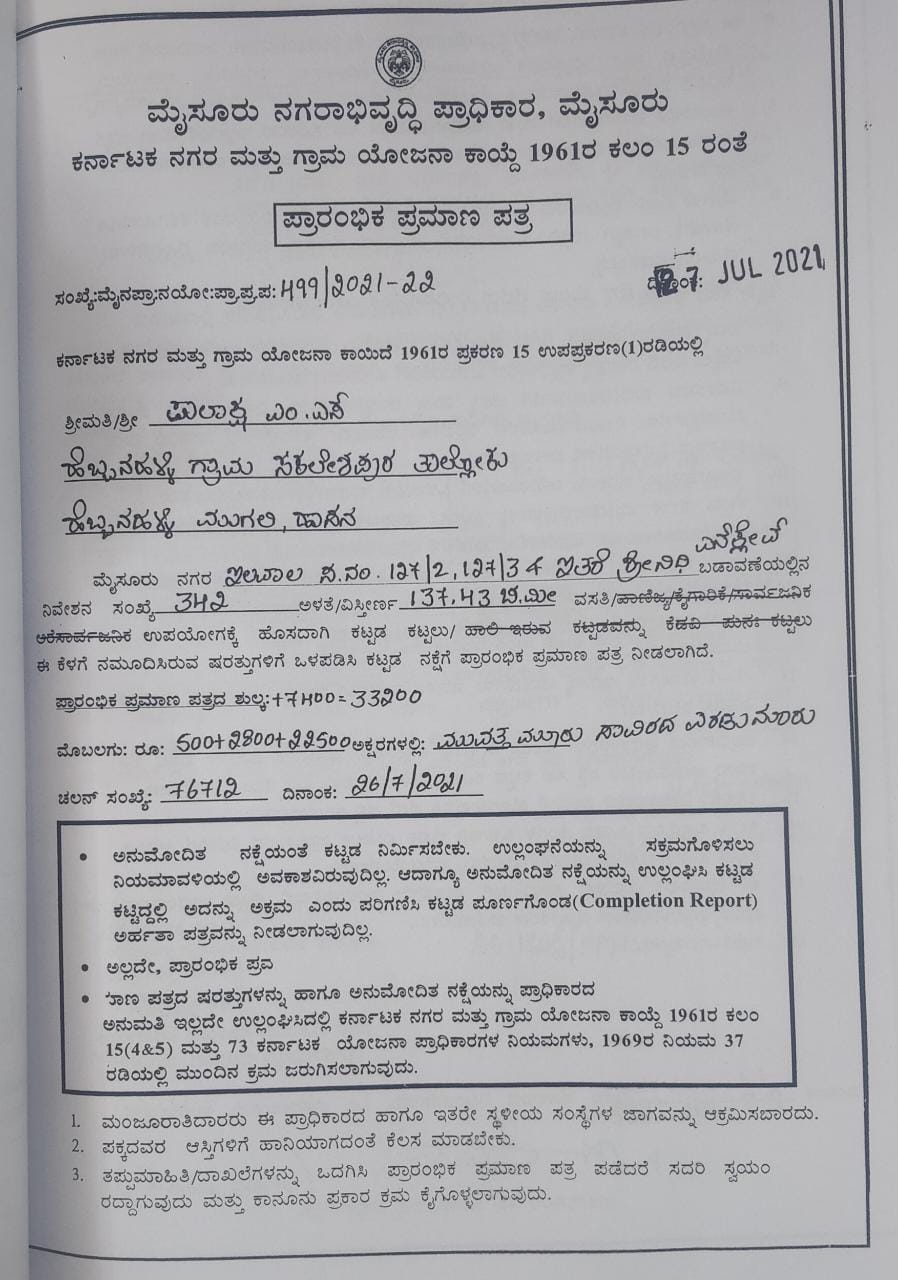 ಮೈಸೂರು ನಗರಾಭಿವೃದ್ಧಿ ಪ್ರಾಧಿಕಾರ, ಮೈಸೂರು
ಕರ್ನಾಟಕ ನಗರ ಮತ್ತು ಗ್ರಾಮ ಯೋಜನಾ ಕಾಯ್ದೆ 1961ರ ಕಲಂ 15 ರಂತೆ
ಪ್ರಾರಂಭಿಕ ಪ್ರಮಾಣ ಪತ್ರ
ಸಂಖ್ಯೆ:ಮೈನಪ್ರಾ:ನಯೋ:ಪ್ರಾ.ಪ್ರ.ಪ: 499/2021-22
27 JUL 2021
ಕರ್ನಾಟಕ ನಗರ ಮತ್ತು ಗ್ರಾಮ ಯೋಜನಾ ಕಾಯಿದೆ 1961ರ ಪ್ರಕರಣ 15 ಉಪಪ್ರಕರಣ(1)ರಡಿಯಲ್ಲಿ
ಶ್ರೀಮತಿ/ಶ್ರೀ ಫಾಲಾಕ್ಷ ಎಂ.ಎಸ್
ಹೆಬ್ಬನಹಳ್ಳಿ ಗ್ರಾಮ ಸಕಲೇಶಪುರ ತಾಲ್ಲೋಕು
ಹೆಬ್ಬನಹಳ್ಳಿ ಮುಗಲಿ, ಹಾಸನ
ಮೈಸೂರು ನಗರ ಇಲವಾಲ ಸ.ನಂ. 127/2, 127/3 & ಇತರೆ ಶ್ರೀನಿಧಿ ಎನ್‌ಕ್ಲೇವ್ ಬಡಾವಣೆಯಲ್ಲಿನ
ನಿವೇಶನ ಸಂಖ್ಯೆ 342 ಅಳತೆ/ವಿಸ್ತೀರ್ಣ 137.43 ಚ.ಮೀ ವಸತಿ/ಹಾಣಿಜ್ಯ/ಕೈಗಾರಿಕೆ/ಸಾರ್ವಜನಿಕ
ಅರೆಸಾರ್ವಜನಿಕ ಉಪಯೋಗಕ್ಕೆ ಹೊಸದಾಗಿ ಕಟ್ಟಡ ಕಟ್ಟಲು/ ಹಾಲಿ ಇರುವ ಕಟ್ಟಡವನ್ನು ಕೆಡವಿ ಪುನಃ ಕಟ್ಟಲು
ಈ ಕೆಳಗೆ ನಮೂದಿಸಿರುವ ಷರತ್ತುಗಳಿಗೆ ಒಳಪಡಿಸಿ ಕಟ್ಟಡ ನಕ್ಷೆಗೆ ಪ್ರಾರಂಭಿಕ ಪ್ರಮಾಣ ಪತ್ರ ನೀಡಲಾಗಿದೆ.
ಪ್ರಾರಂಭಿಕ ಪ್ರಮಾಣ ಪತ್ರದ ಶುಲ್ಕ:+7400=33200
ಮೊಬಲಗು: ರೂ: 500+2800+22500 ಅಕ್ಷರಗಳಲ್ಲಿ: ಮುವತ್ತ ಮೂರು ಸಾವಿರದ ಎರಡುನೂರು
ಚಲನ್ ಸಂಖ್ಯೆ: 76712 ದಿನಾಂಕ: 26/7/2021
• ಅನುಮೋದಿತ ನಕ್ಷೆಯಂತೆ ಕಟ್ಟಡ ನಿರ್ಮಿಸಬೇಕು. ಉಲ್ಲಂಘನೆಯನ್ನು ಸಕ್ರಮಗೊಳಿಸಲು
ನಿಯಮಾವಳಿಯಲ್ಲಿ ಅವಕಾಶವಿರುವುದಿಲ್ಲ. ಆದಾಗ್ಯೂ ಅನುಮೋದಿತ ನಕ್ಷೆಯನ್ನು ಉಲ್ಲಂಘಿಸಿ ಕಟ್ಟಡ
ಕಟ್ಟಿದ್ದಲ್ಲಿ ಅದನ್ನು ಅಕ್ರಮ ಎಂದು ಪರಿಗಣಿಸಿ ಕಟ್ಟಡ ಪೂರ್ಣಗೊಂಡ(Completion Report)
ಅರ್ಹತಾ ಪತ್ರವನ್ನು ನೀಡಲಾಗುವುದಿಲ್ಲ.
• ಅಲ್ಲದೇ, ಪ್ರಾರಂಭಿಕ ಪ್ರವ
• ಾಣ ಪತ್ರದ ಷರತ್ತುಗಳನ್ನು ಹಾಗೂ ಅನುಮೋದಿತ ನಕ್ಷೆಯನ್ನು ಪ್ರಾಧಿಕಾರದ
ಅನುಮತಿ ಇಲ್ಲದೇ ಉಲ್ಲಂಘಿಸಿದಲ್ಲಿ ಕರ್ನಾಟಕ ನಗರ ಮತ್ತು ಗ್ರಾಮ ಯೋಜನಾ ಕಾಯ್ದೆ 1961ರ ಕಲಂ
15(4&5) ಮತ್ತು 73 ಕರ್ನಾಟಕ ಯೋಜನಾ ಪ್ರಾಧಿಕಾರಗಳ ನಿಯಮಗಳು, 1969ರ ನಿಯಮ 37
ರಡಿಯಲ್ಲಿ ಮುಂದಿನ ಕ್ರಮ ಜರುಗಿಸಲಾಗುವುದು.
1. ಮಂಜೂರಾತಿದಾರರು ಈ ಪ್ರಾಧಿಕಾರದ ಹಾಗೂ ಇತರೇ ಸ್ಥಳೀಯ ಸಂಸ್ಥೆಗಳ ಜಾಗವನ್ನು ಆಕ್ರಮಿಸಬಾರದು.
2. ಪಕ್ಕದವರ ಆಸ್ತಿಗಳಿಗೆ ಹಾನಿಯಾಗದಂತೆ ಕೆಲಸ ಮಾಡಬೇಕು.
3. ತಪ್ಪುಮಾಹಿತಿ/ದಾಖಲೆಗಳನ್ನು ಒದಗಿಸಿ ಪ್ರಾರಂಭಿಕ ಪ್ರಮಾಣ ಪತ್ರ ಪಡೆದರೆ ಸದರಿ ಸ್ವಯಂ
ರದ್ದಾಗುವುದು ಮತ್ತು ಕಾನೂನು ಪ್ರಕಾರ ಕ್ರಮ ಕೈಗೊಳ್ಳಲಾಗುವುದು.